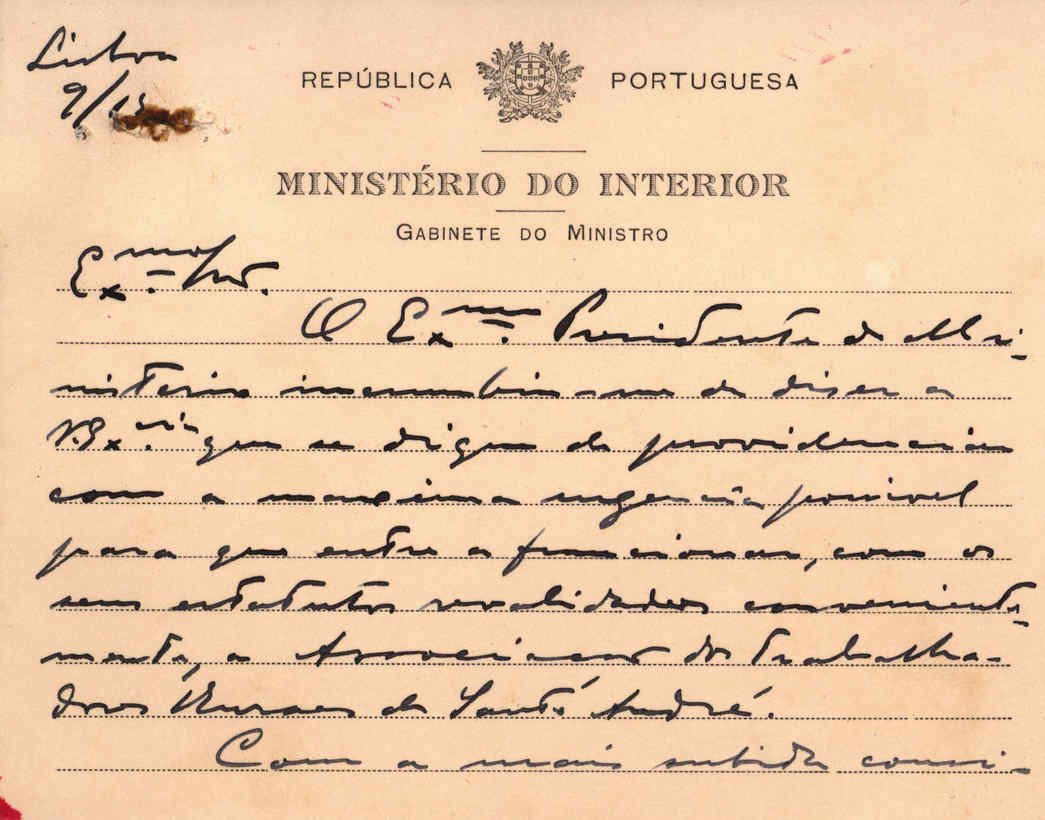 Lisboa
9/13
REPÚBLICA PORTUGUESA
MINISTÉRIO DO INTERIOR
GABINETE DO MINISTRO
Exmo. Snr.
O Exmo. Presidente do Mi-
nisterio incumbiu-me de diser a
V. Exª. que se digne de providenciar
com a maxima urgencia possivel
para que entre a funcionar, com os
seus estatutos revalidados conveniente-
mente, a Associacao dos trabalha-
dores Ruraes de Santo André.
Com a mais subida consi-